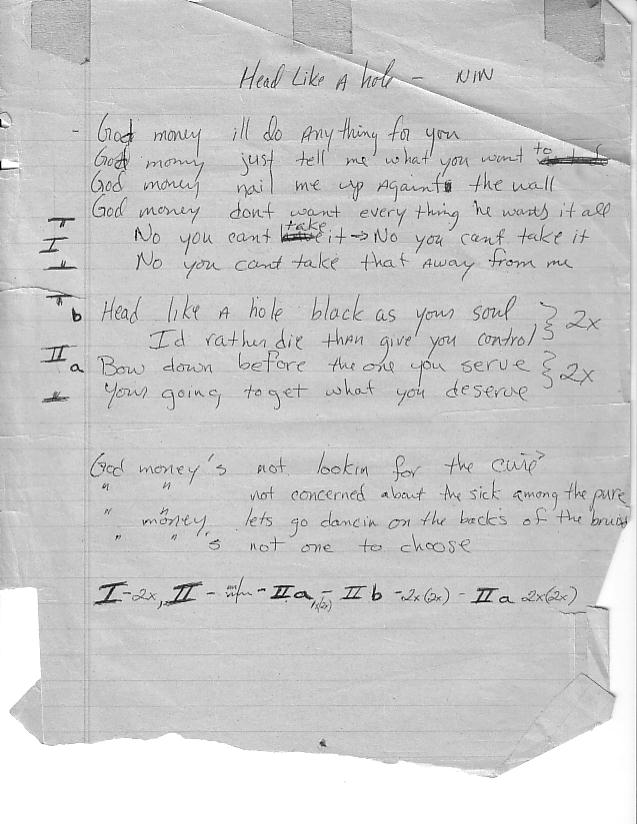 Head Like A hole - NIN
- God money ill do Anything for you
God money just tell me what you want to
God money nail me up Against the wall
God money dont want everything he wants it all
I No you cant take it → No you cant take it
No you cant take that Away from me
b Head like A hole black as your soul } 2x
I'd rather die than give you control
II a Bow down before the one you serve } 2x
Your going to get what you deserve
God money's not lookin for the cure
" " not concerned about the sick among the pure
" money lets go dancin on the backs of the bruis
" " 's not one to choose
I-2x, II - - IIa - II b -2x(2x) - II a 2x(2x)